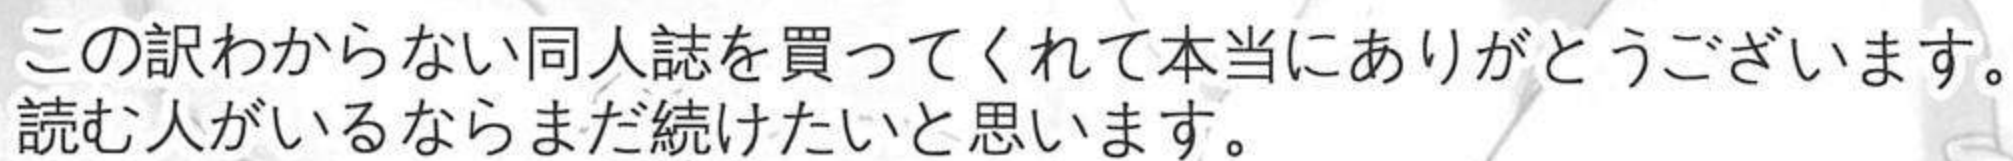 この訳わからない同人誌を買ってくれて本当にありがとうございます。
読む人がいるならまだ続けたいと思います。